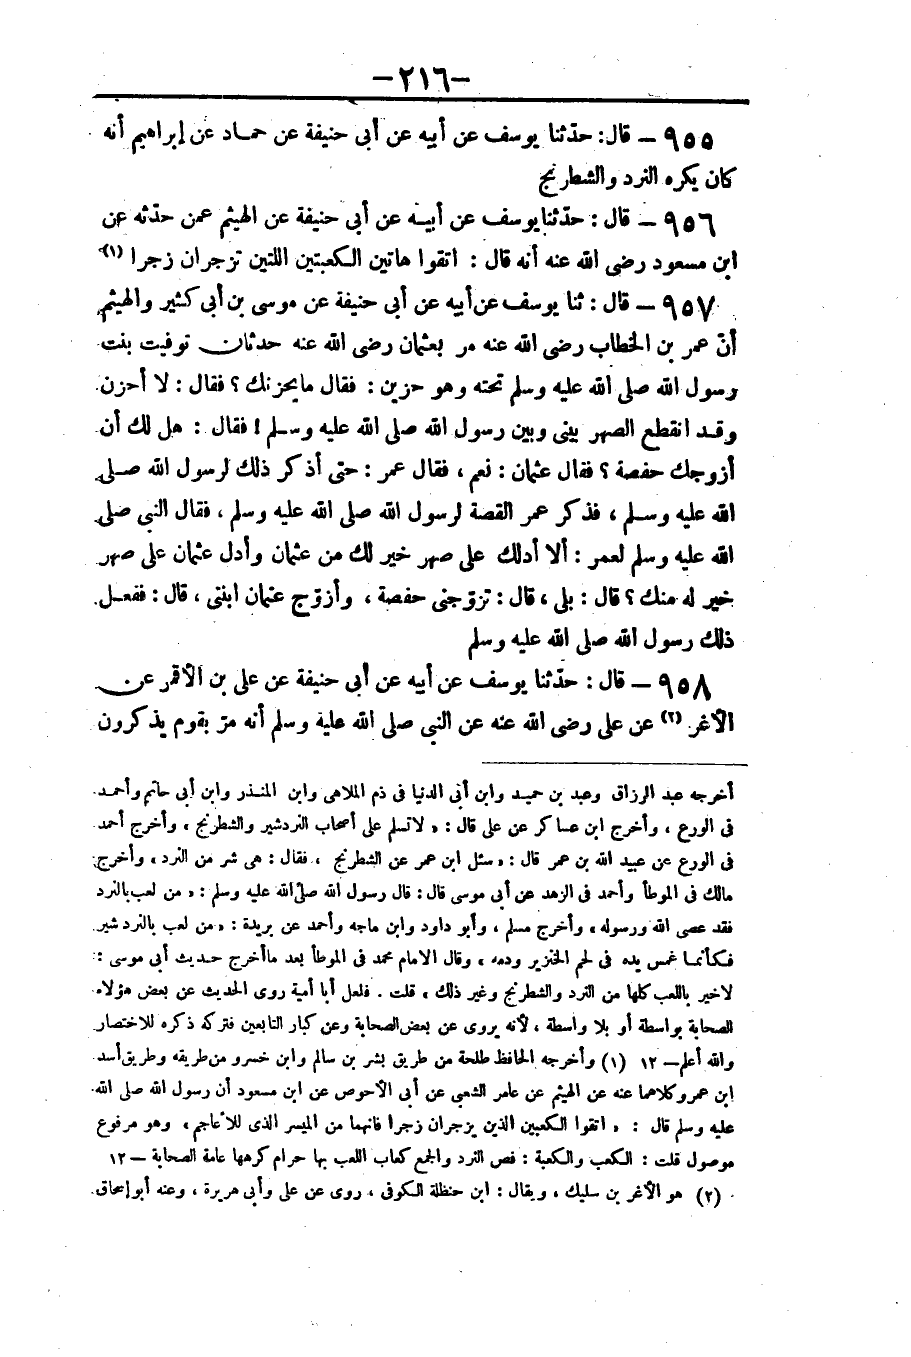 -٢١٦-
٩٥٥ - قال: حدّثنا يوسف عن أبيه عن أبى حنيفة عن حماد عن إبراهيم أنه
كان يكره النرد والشطرنج
٩٥٦ - قال : حدّثنا يوسف عن أبيه عن أبى حنيفة عن الهيثم عمن حدثه عن
ابن مسعود رضى الله عنه أنه قال : اتقوا هاتين الكعبتين اللتين تزجران زجرا (١)
٩٥٧ - قال : ثنا يوسف عن أبيه عن أبى حنيفة عن موسى بن أبى كثير والهيثم
أنّ عمر بن الخطاب رضى الله عنه مر بعثمان رضى الله عنه حدثان توفيت بنت
رسول الله صلى الله عليه وسلم تحته وهو حزين : فقال ما يحزنك ؟ فقال : لا أحزن
وقد انقطع الصهر بينى وبين رسول الله صلى الله عليه وسلم ! فقال : هل لك أن
أزوجك حفصة ؟ فقال عثمان : نعم ، فقال عمر : حتى أذكر ذلك لرسول الله صلى
الله عليه وسلم ، فذكر عمر القصة لرسول الله صلى الله عليه وسلم ، فقال النبى صلى
الله عليه وسلم لعمر : ألا أدلك على صهر خير لك من عثمان وأدل عثمان على صهر
خير له منك ؟ قال : بلى ، قال : تزوّجنى حفصة ، وأزوّج عثمان ابنتى ، قال : ففعل
ذلك رسول الله صلى الله عليه وسلم
٩٥٨ - قال : حدّثنا يوسف عن أبيه عن أبى حنيفة عن على بن الأقمر عن
الأغر (٢) عن على رضى الله عنه عن النبى صلى الله عليه وسلم أنه مرّ بقوم يذكرون
أخرجه عبد الرزاق وعبد بن حميد وابن أبى الدنيا فى ذم الملاهى وابن المنذر وابن أبى حاتم وأحمد
فى الورع ، وأخرج ابن عساكر عن على قال : « لا تسلم على أصحاب النردشير والشطرنج ، وأخرج أحمد
فى الورع عن عبيد الله بن عمر قال : « سئل ابن عمر عن الشطرنج ، فقال : هى شر من النرد ، وأخرج
مالك فى الموطأ وأحمد فى الزهد عن أبى موسى قال : قال رسول الله صلى الله عليه وسلم : « من لعب بالنرد
فقد عصى الله ورسوله ، وأخرج مسلم ، وأبو داود وابن ماجه وأحمد عن بريدة : « من لعب بالنردشير
فكأنما غمس يده فى لحم الخنزير ودمه ، وقال الامام محمد فى الموطأ بعد ما أخرج حديث أبى موسى :
لا خير باللعب كلها من النرد والشطرنج وغير ذلك ، قلت . فلعل أبا أمية روى الحديث عن بعض هؤلاء
الصحابة بواسطة أو بلا واسطة ، لأنه يروى عن بعض الصحابة وعن كبار التابعين فتركه ذكره للاختصار
والله أعلم - ١٢ (١) وأخرجه الحافظ طلحة من طريق بشر بن سالم وابن خسرو من طريقه وطريق أسد
ابن عمرو كلاهما عنه عن الهيثم عن عامر الشعبى عن أبى الأحوص عن ابن مسعود أن رسول الله صلى الله
عليه وسلم قال : « اتقوا الكعبين الذين يزجران زجرا فانهما من الميسر الذى للأعاجم ، وهو مرفوع
موصول قلت : الكعب والكعبة : فص النرد والجمع كعاب اللعب بها حرام كرهها عامة الصحابة - ١٢
(٢) هو الأغر بن سليك ، ويقال : ابن حنظلة الكوفى ، روى عن على وأبى هريرة ، وعنه أبو إسحاق